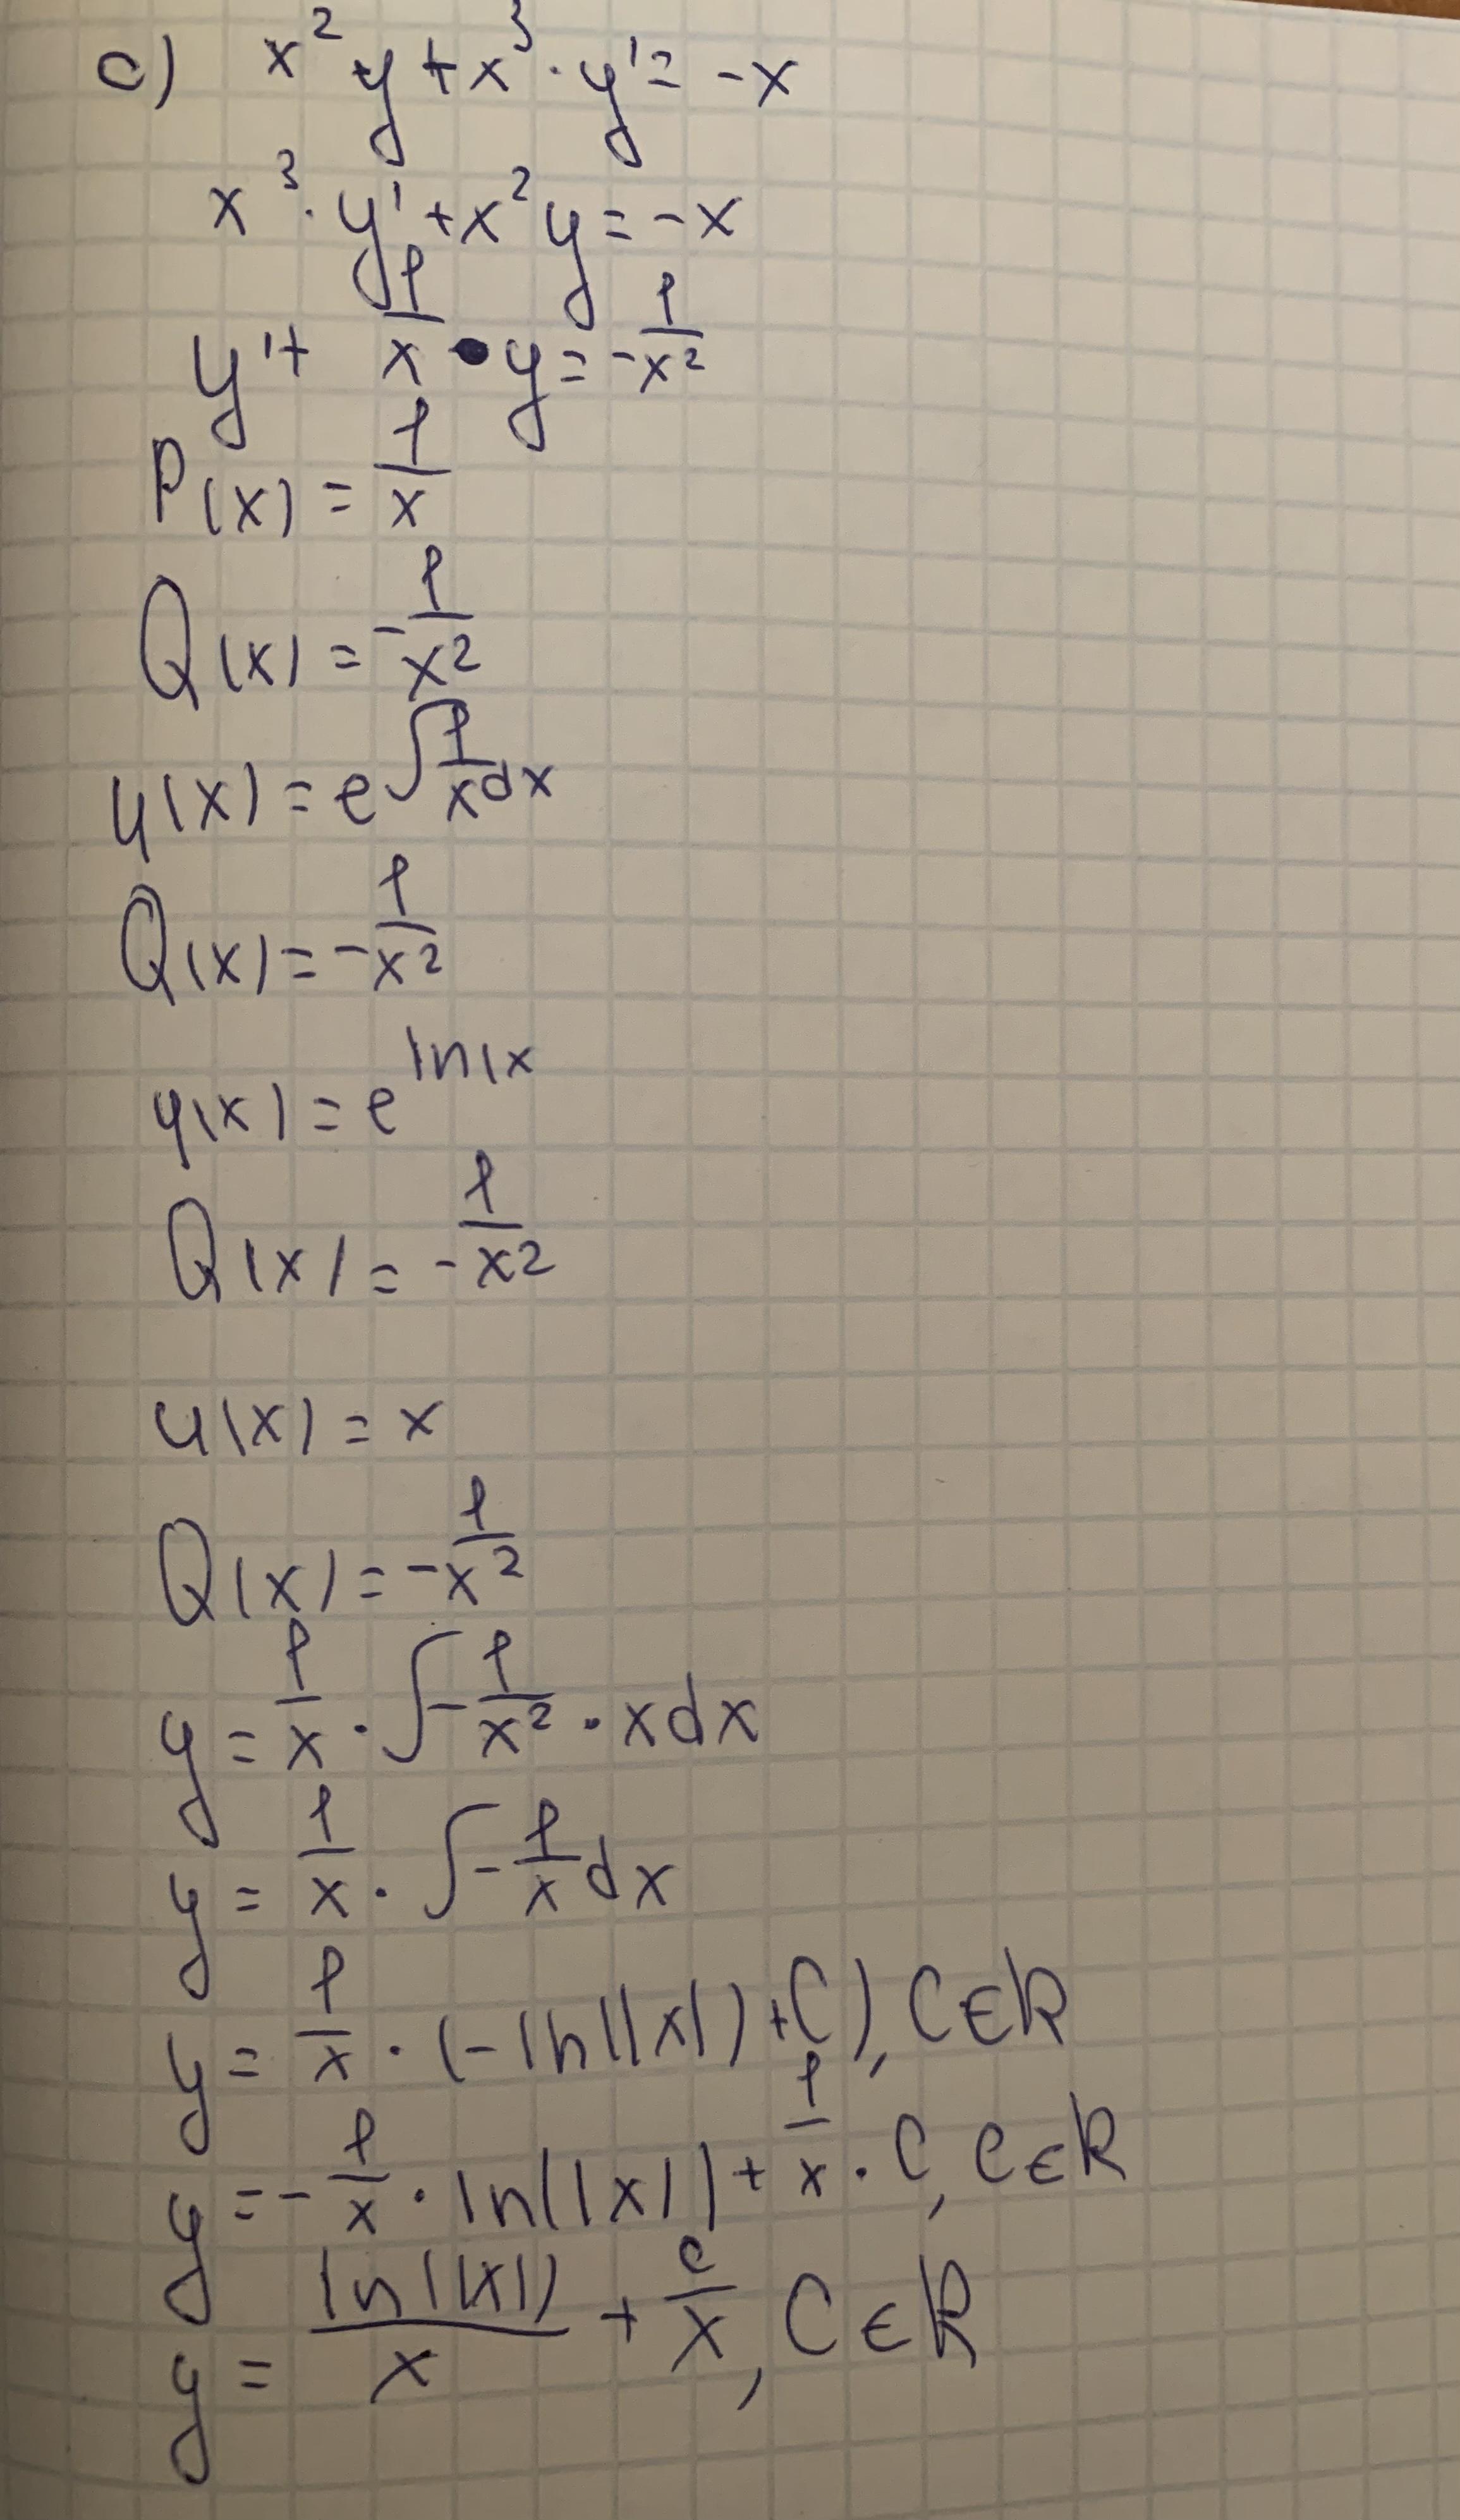 c) x² y + x³ · y' = -x
x³ · y' + x² y = -x
y' + 1/x · y = - 1/x²
P(x) = 1/x
Q(x) = - 1/x²
u(x) = e^∫ 1/x dx
Q(x) = - 1/x²
u(x) = e^ln|x
Q(x) = - 1/x²
u(x) = x
Q(x) = - 1/x²
y = 1/x · ∫ - 1/x² · x dx
y = 1/x · ∫ - 1/x dx
y = 1/x · (-ln(|x|) + C), C ∈ R
y = - 1/x · ln(|x|) + 1/x · C, C ∈ R
y = ln(|x|)/x + c/x, C ∈ R